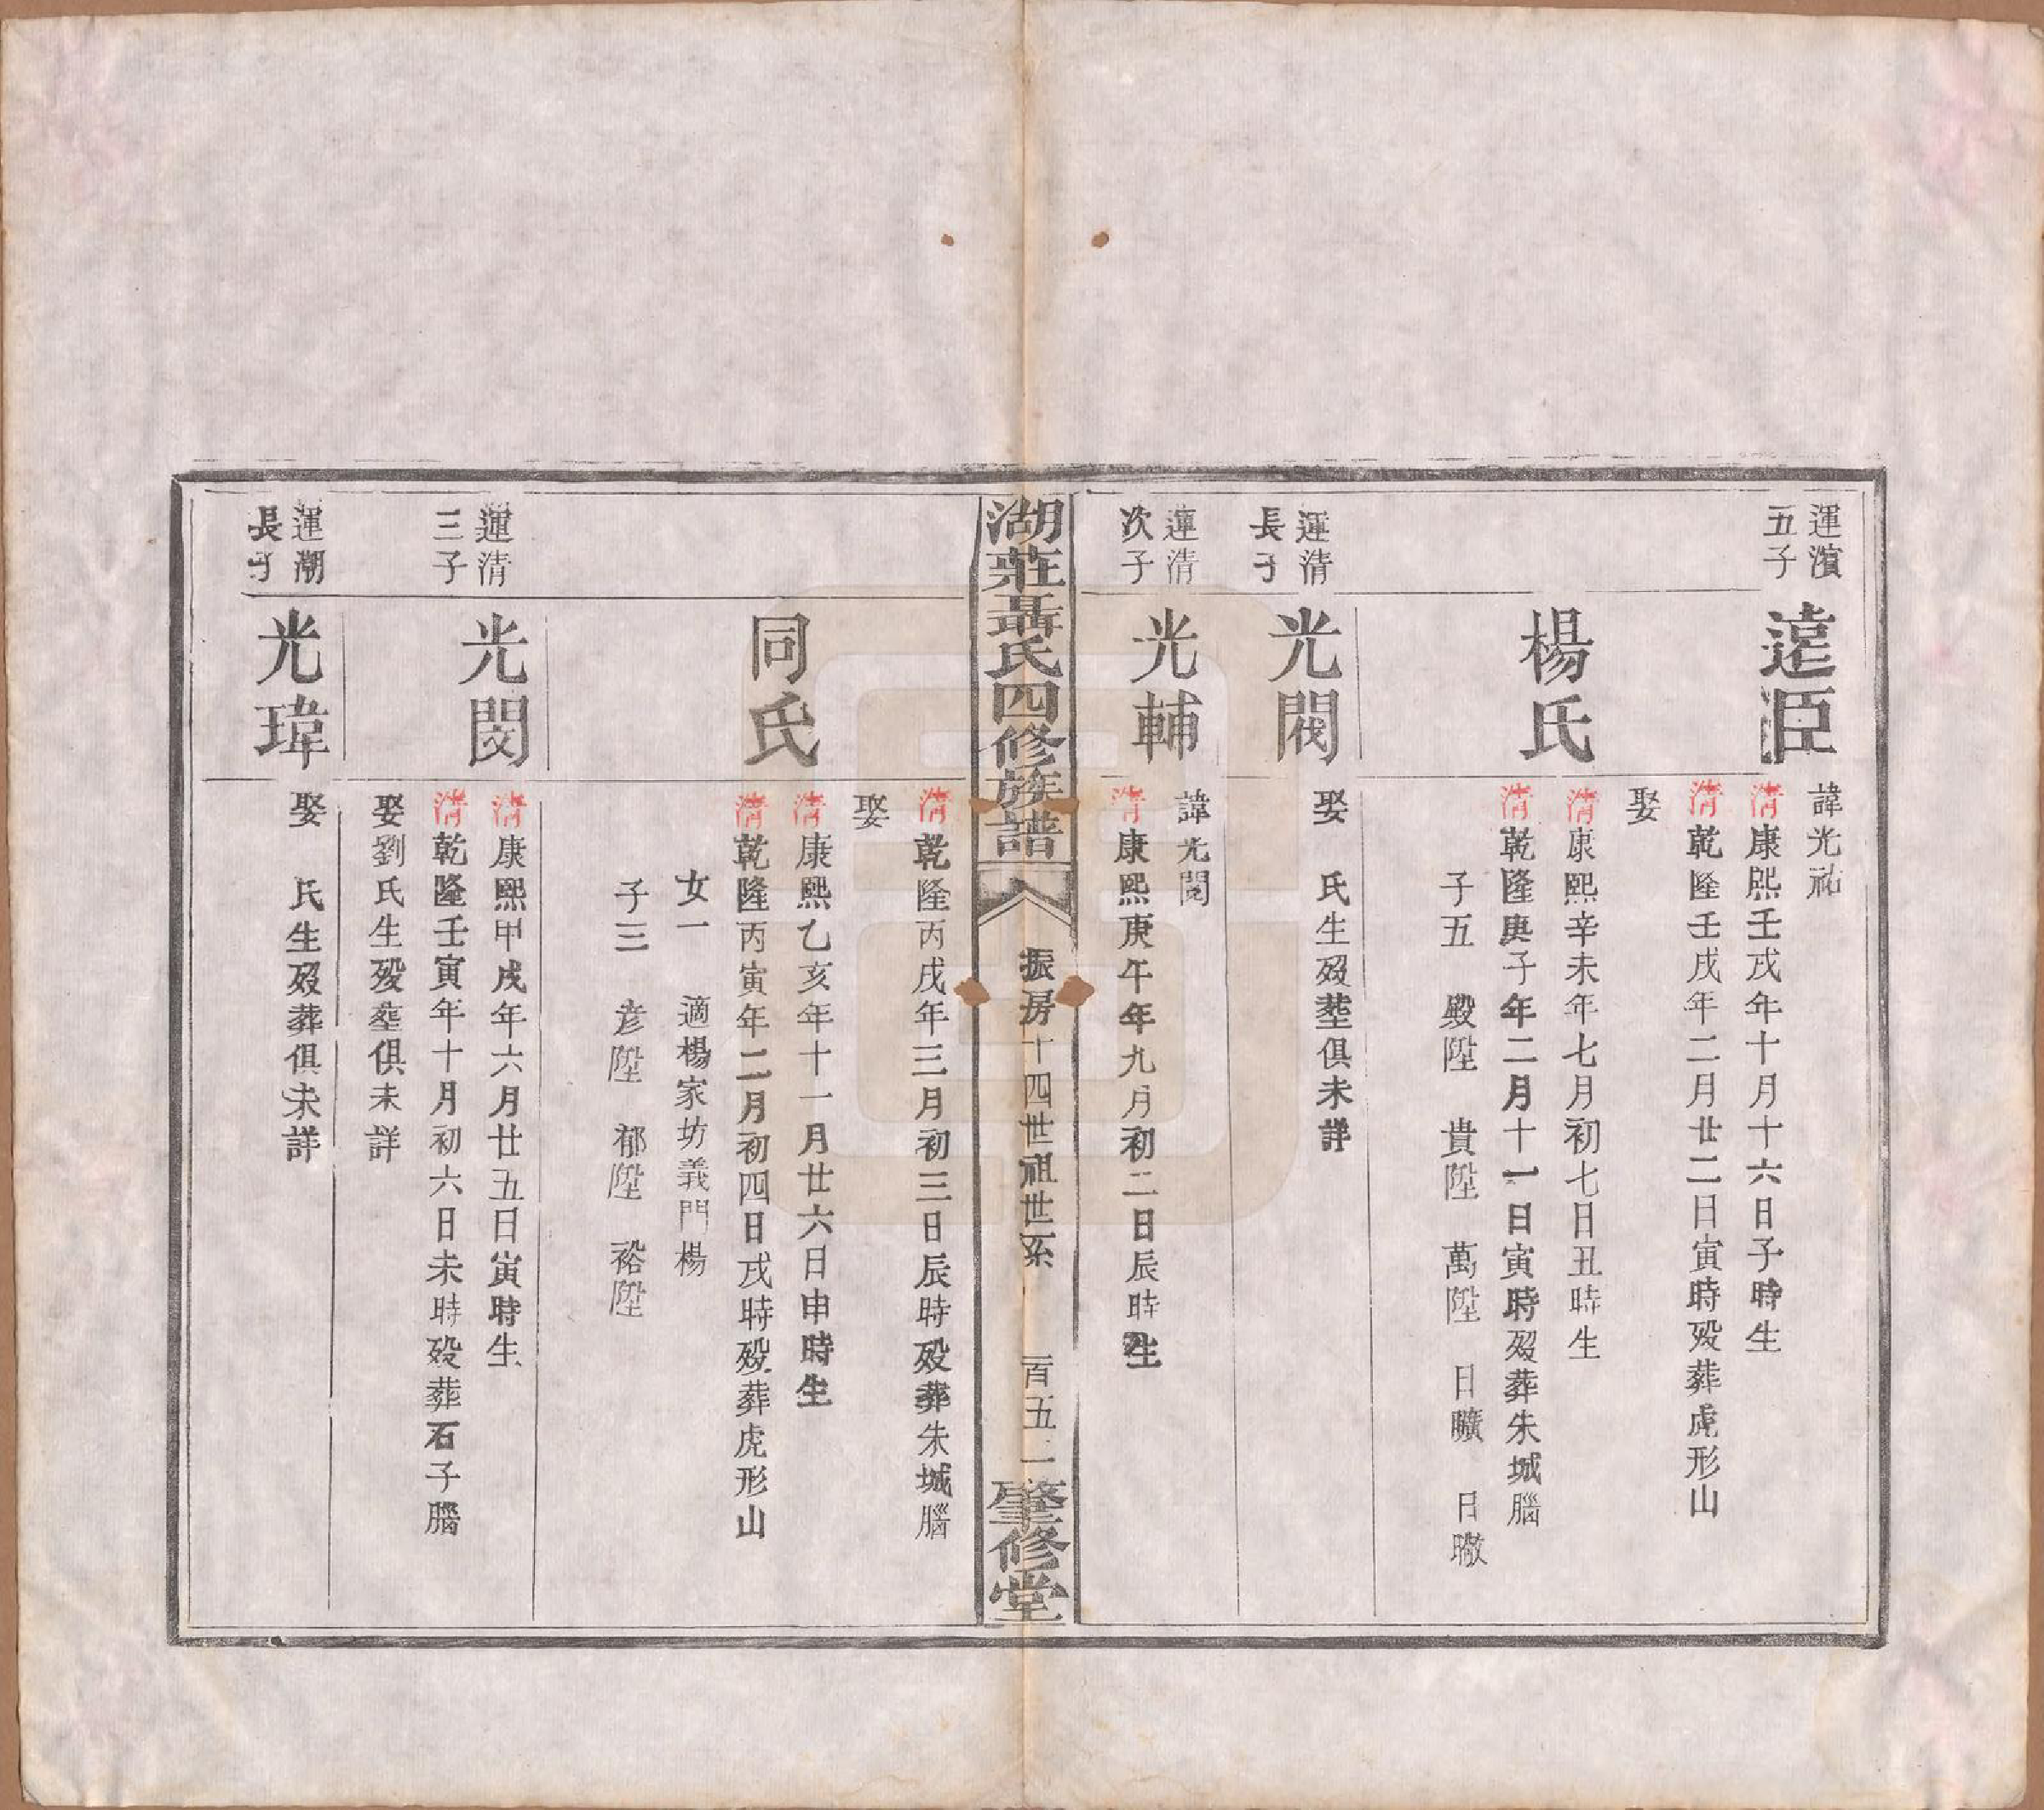 運濱
五子
遠臣
諱光祐
清康熙壬戌年十月十六日子時生
清乾隆壬戌年二月廿二日寅時歿葬虎形山
娶
楊氏
清康熙辛未年七月初七日丑時生
清乾隆庚子年二月十一日寅時歿葬朱城腦
子五 殿陞 貴陞 萬陞 日曠 日暾
運清
長子
光閥
娶 氏生歿塟俱未詳
運清
次子
光輔
諱光閣
清康熙庚午年九月初二日辰時生
湖莊聶氏四修族譜
振房十四世祖世系
一百五二
肇修堂
清乾隆丙戌年三月初三日辰時歿葬朱城腦
娶
同氏
清康熙乙亥年十一月廿六日申時生
清乾隆丙寅年二月初四日戌時歿葬虎形山
女一 適楊家坊義門楊
子三 彦陞 郁陞 裕陞
運清
三子
光閔
清康熙甲戌年六月廿五日寅時生
清乾隆壬寅年十月初六日未時歿葬石子腦
娶劉氏生歿塟俱未詳
運潮
長子
光瑋
娶 氏生歿葬俱未詳